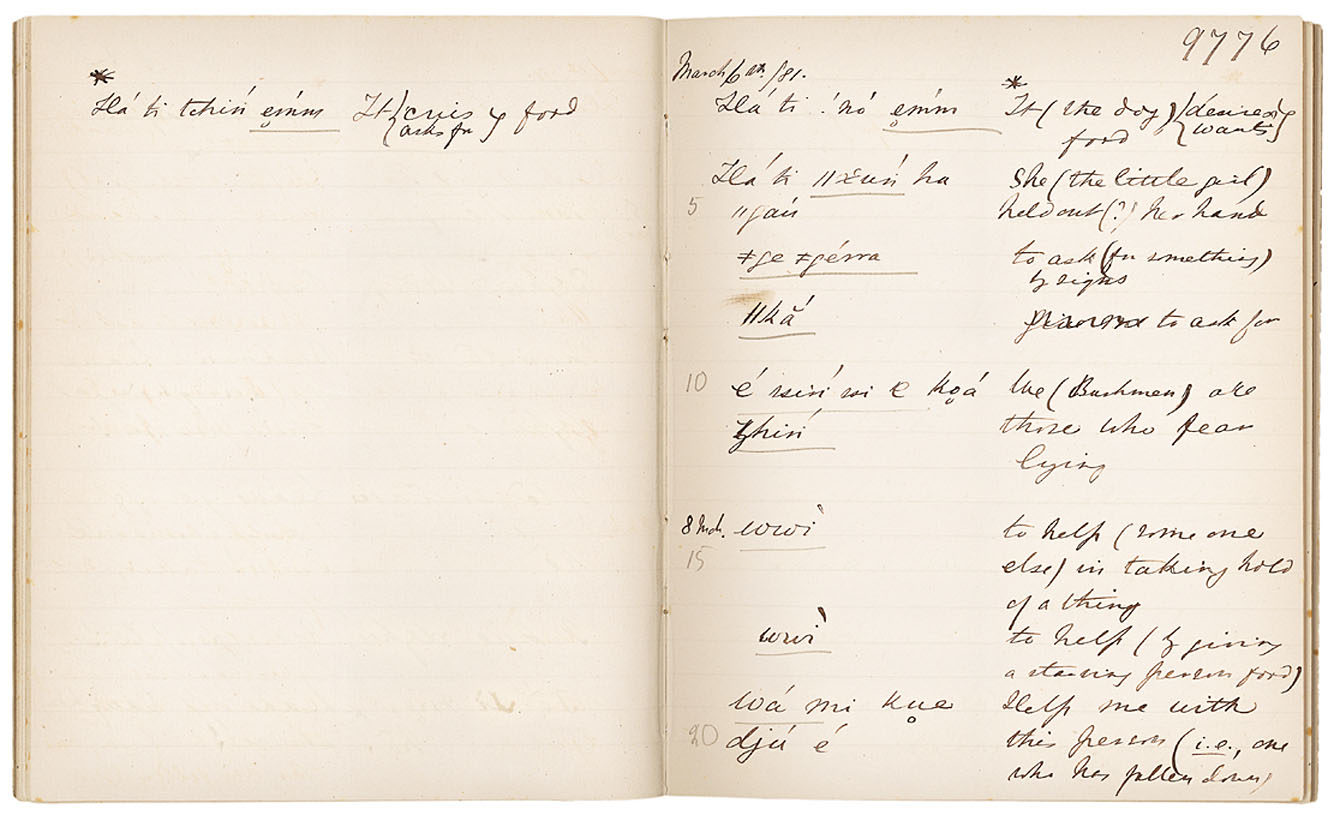 *
Há ti tchiṅ ẹḿm It {cries / asks for} food
9776
March 6th /81.
*
Há ti ǃnó ẹḿm It (the dog) {desires / wants}
food
Há ti ǁx̆uṅ ha She (the little girl)
5 ǁgaú held out (?) her hand
ǂge ǂgérra to ask (for something)
by signs
ǁkắ to ask for
10 é we (Bushmen) are
those who fear
lying
8 Mch. wwì to help (some one
15 else) in taking hold
of a thing
wwì to help (by giving
a starving person food)
Wá mi kụe Help me with
20 djú é this person (i.e., one
who has fallen down)